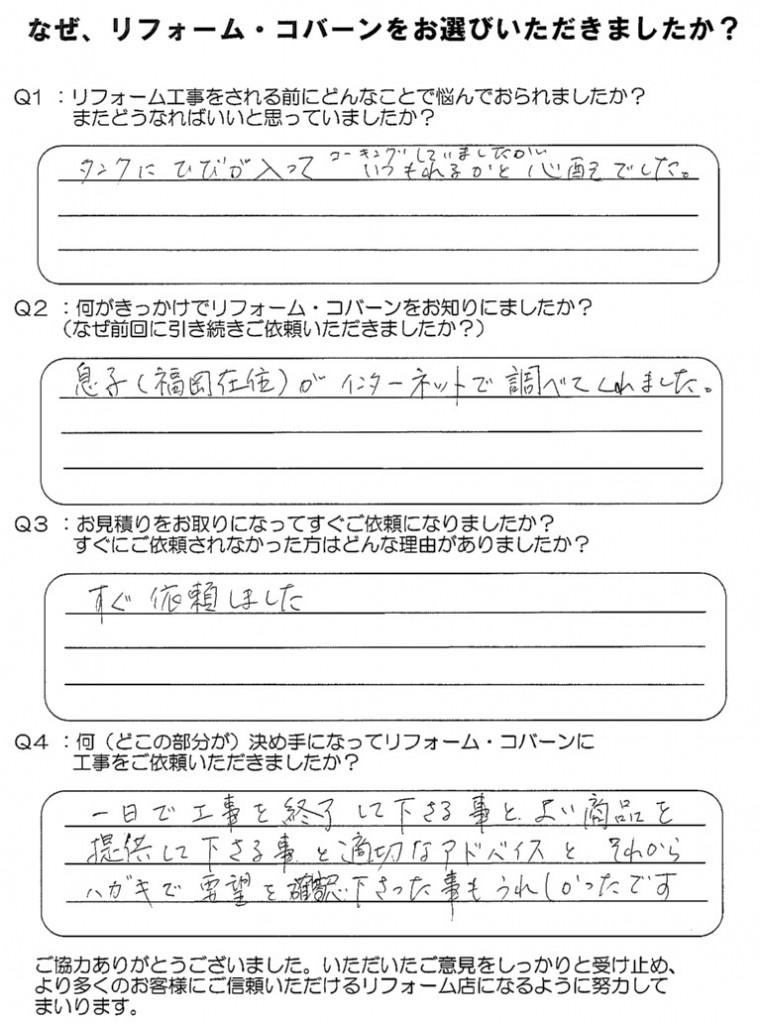 なぜ、リフォーム・コバーンをお選びいただきましたか？
Q1 ：リフォーム工事をされる前にどんなことで悩んでおられましたか？
またどうなればいいと思っていましたか？
コーキングしていましたがい
タンクにひびが入って いつもれるかと心配でした。
Q2 ：何がきっかけでリフォーム・コバーンをお知りにましたか？
（なぜ前回に引き続きご依頼いただきましたか？）
息子（福岡在住）がインターネットで調べてくれました。
Q3 ：お見積りをお取りになってすぐご依頼になりましたか？
すぐにご依頼されなかった方はどんな理由がありましたか？
すぐ依頼しました
Q4 ：何（どこの部分が）決め手になってリフォーム・コバーンに
工事をご依頼いただきましたか？
一日で工事を終了して下さる事と よい商品を
提供して下さる事と適切なアドバイスと それから
ハガキで要望を確認下さった事もうれしかったです
ご協力ありがとうございました。いただいたご意見をしっかりと受け止め、
より多くのお客様にご信頼いただけるリフォーム店になるように努力して
まいります。